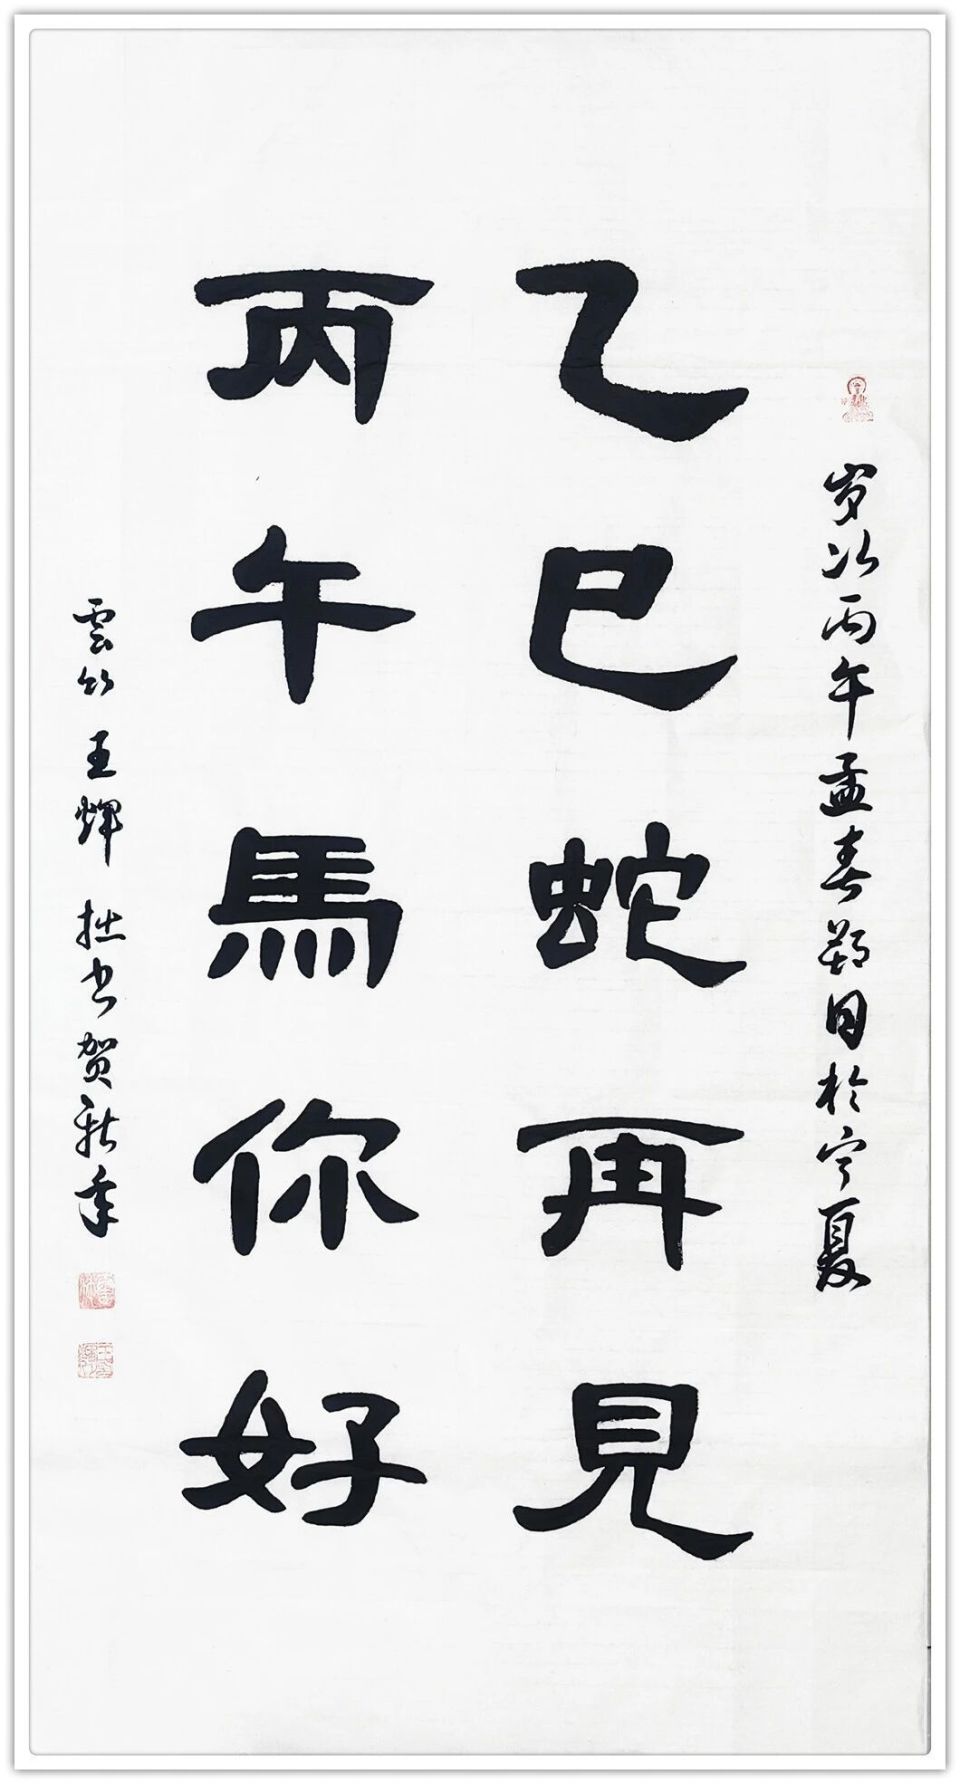 岁次丙午孟春朔日於宁夏
乙巳蛇再見
丙午馬你好
雲竹王輝拙书贺新年